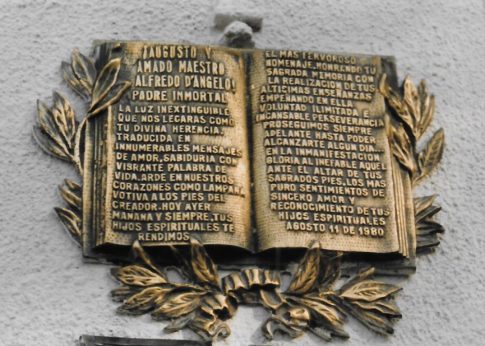 ¡AUGUSTO Y
AMADO MAESTRO
ALFREDO D'ANGELO!
PADRE INMORTAL
LA LUZ INEXTINGUIBLE
QUE NOS LEGARAS COMO
TU DIVINA HERENCIA,
TRADUCIDA EN
INNUMERABLES MENSAJES
DE AMOR, SABIDURIA CON
VIBRANTE PALABRA DE
VIDA. ARDE EN NUESTROS
CORAZONES COMO LAMPARA
VOTIVA A LOS PIES DEL
CREADOR. HOY AYER
MAÑANA Y SIEMPRE, TUS
HIJOS ESPIRITUALES TE
RENDIMOS.
EL MAS FERVOROSO
HOMENAJE, HONRENDO TU
SAGRADA MEMORIA CON
LA REALIZACION DE TUS
ALTICIMAS ENSEÑANZAS
EMPEÑANDO EN ELLA
VOLUNTAD ILIMITADA E
INCANSABLE PERSEVERANCIA
PROSEGUIMOS SIEMPRE
ADELANTE HASTA PODER
ALCANZARTE ALGUN DIA
EN LA INMANIFESTACION
GLORIA AL INEFABLE AQUEL
ANTE EL ALTAR DE TUS
SAGRADOS PIES, LOS MAS
PURO SENTIMIENTOS DE
SINCERO AMOR Y
RECONOCIMIENTO DE TUS
HIJOS ESPIRITUALES
AGOSTO 11 DE 1980